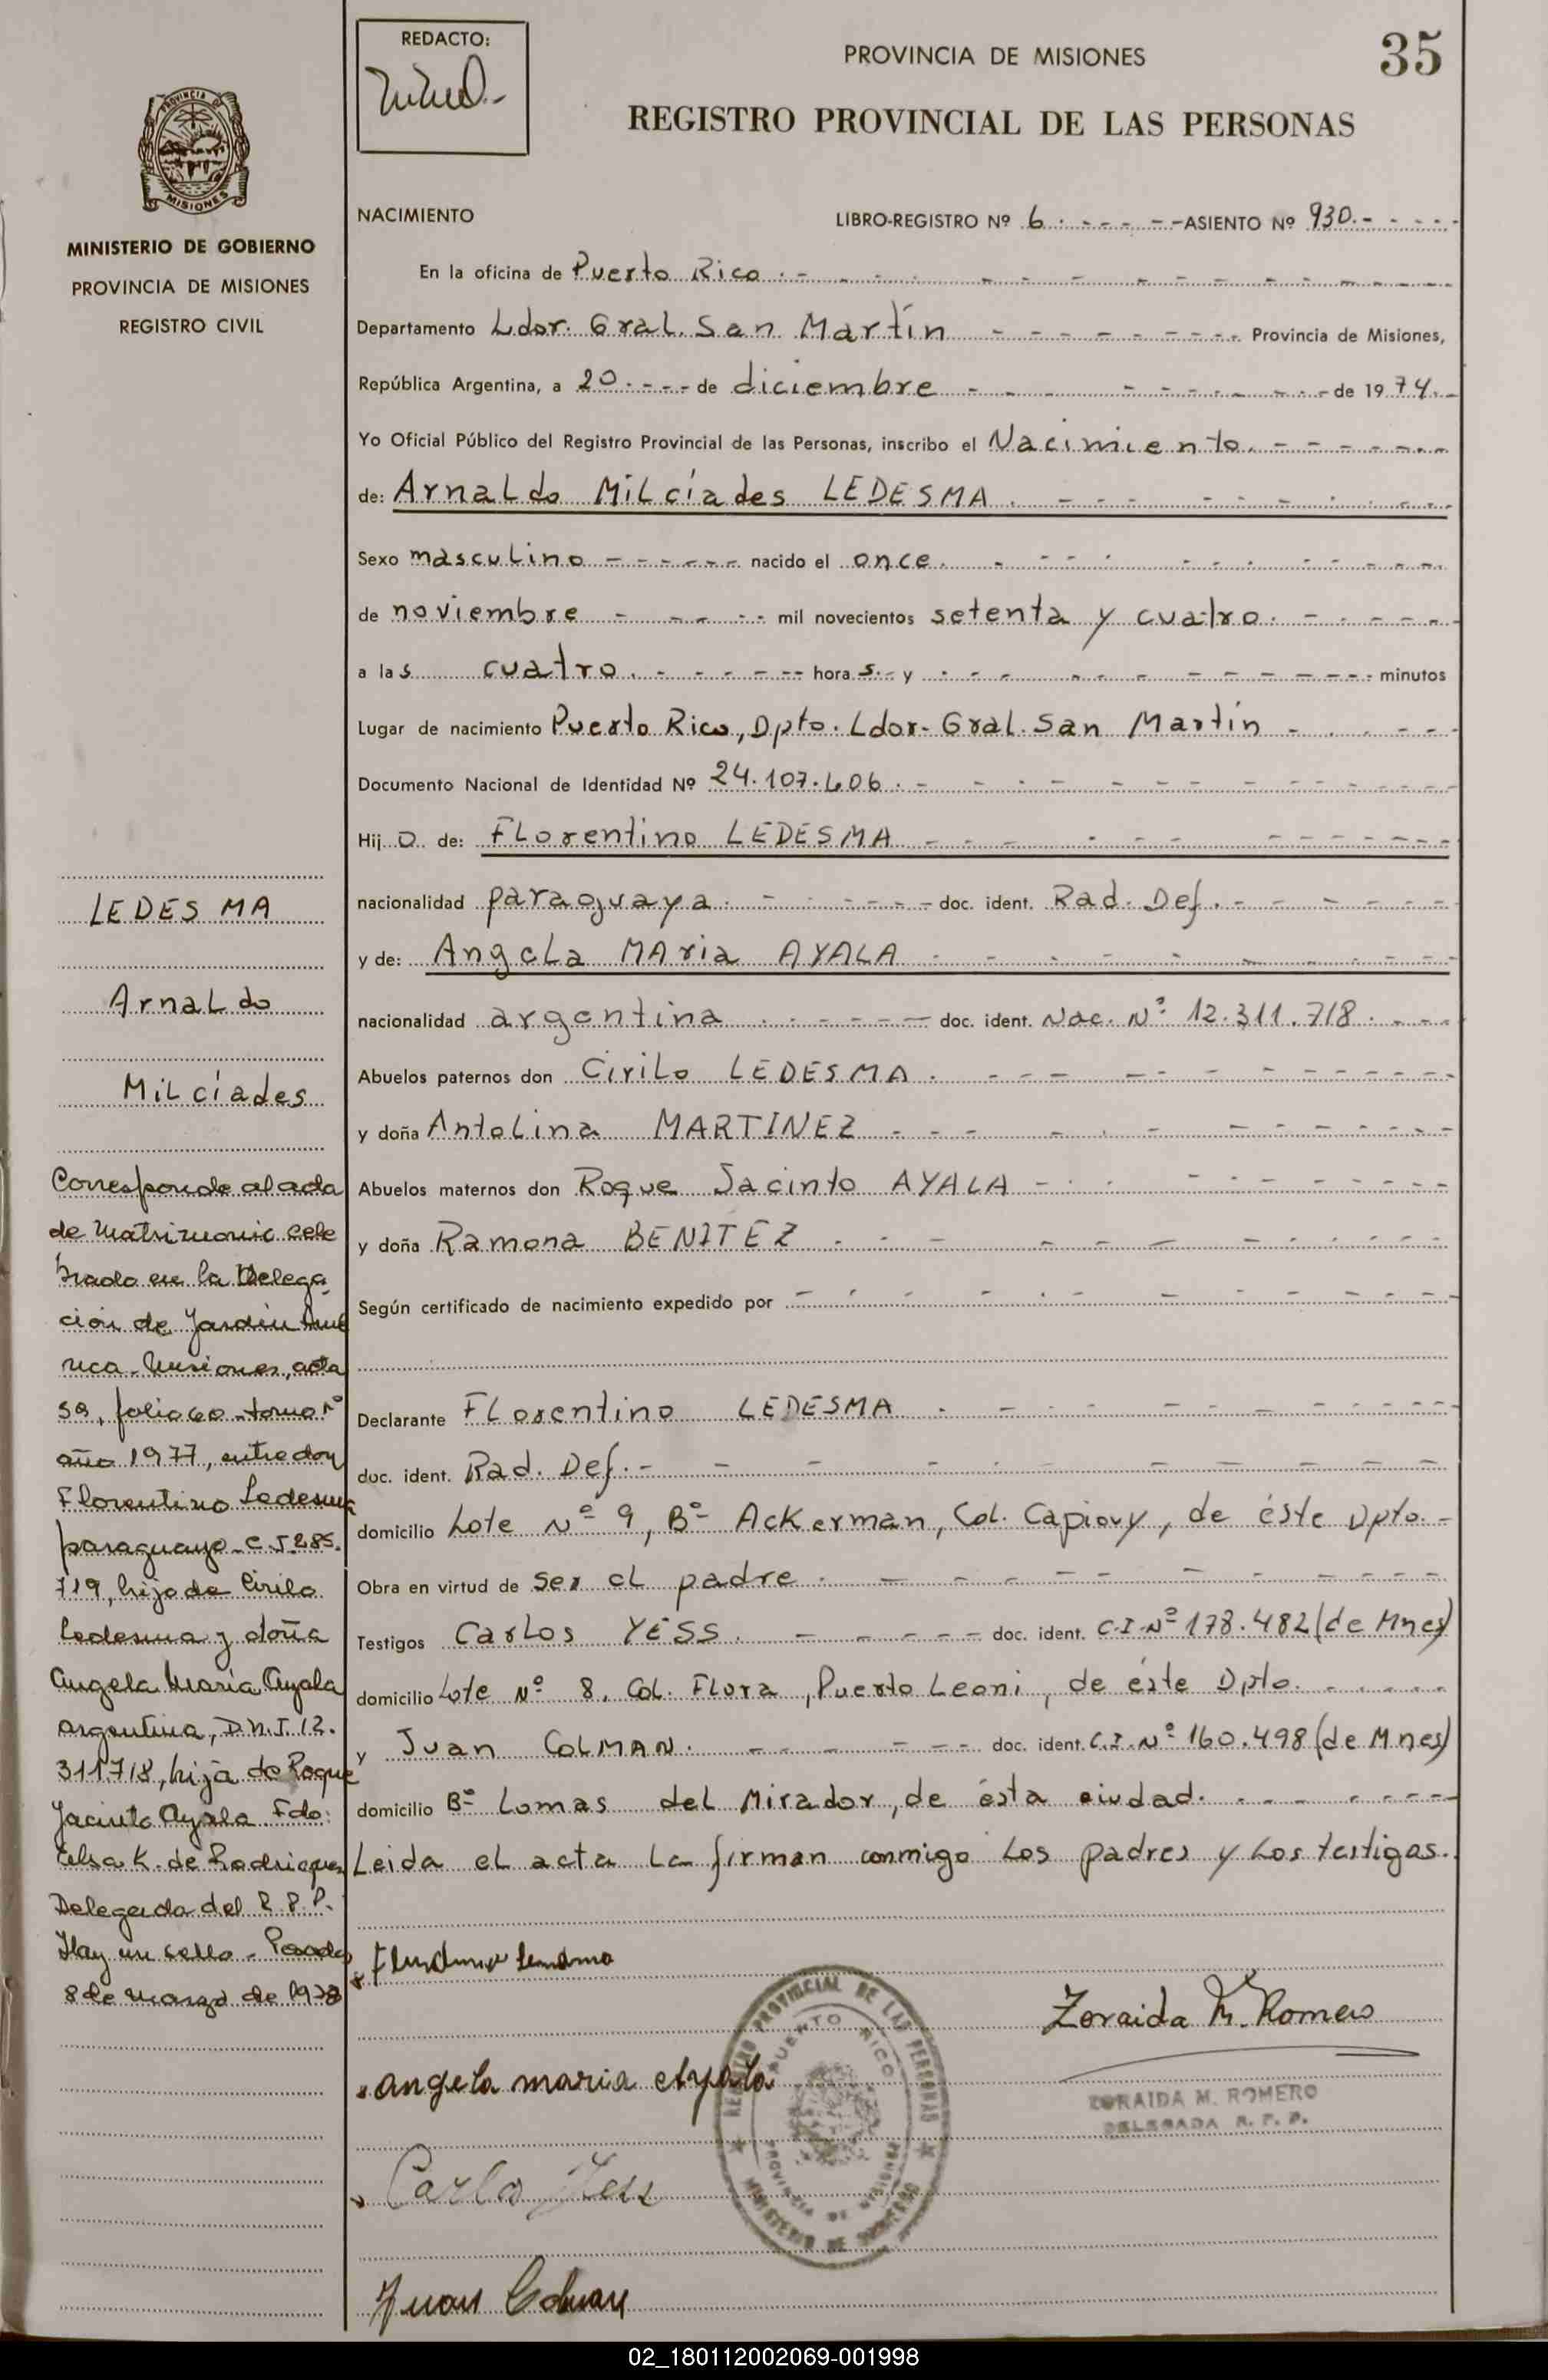 REDACTO:
PROVINCIA DE MISIONES
35
REGISTRO PROVINCIAL DE LAS PERSONAS
PROVINCIA D
MISIONES
MINISTERIO DE GOBIERNO
PROVINCIA DE MISIONES
REGISTRO CIVIL
NACIMIENTO
LIBRO-REGISTRO Nº 6 ASIENTO Nº 930.-
En la oficina de Puerto Rico.-
Departamento Ldor. Gral. San Martín Provincia de Misiones,
República Argentina, a 20 de diciembre de 1974.
Yo Oficial Público del Registro Provincial de las Personas, inscribo el Nacimiento.
de: Arnaldo Milcíades LEDESMA.
Sexo masculino nacido el once.
de noviembre mil novecientos setenta y cuatro.
a las cuatro. horas. y minutos
Lugar de nacimiento Puerto Rico, Dpto. Ldor. Gral. San Martín
Documento Nacional de Identidad Nº 24.107.406.-
Hijo de: Florentino LEDESMA
nacionalidad paraguaya. doc. ident. Rad. Def.
y de: Angela MAria AYALA
nacionalidad argentina doc. ident. Nac. Nº 12.311.718.
Abuelos paternos don Cirilo LEDESMA.
y doña Antolina MARTINEZ
Abuelos maternos don Roque Jacinto AYALA
y doña Ramona BENITEZ
Según certificado de nacimiento expedido por
Declarante Florentino LEDESMA
doc. ident. Rad. Def.-
domicilio Lote Nº 9, Bº Ackerman, Col. Capiovy, de éste Dpto.-
Obra en virtud de ser el padre.
Testigos Carlos YESS. doc. ident. C.I. Nº 178.482 (de Mnes)
domicilio Lote Nº 8, Col. Flora, Puerto Leoni, de éste Dpto.
y Juan COLMAN. doc. ident. C.I. Nº 160.498 (de Mnes)
domicilio Bº Lomas del Mirador, de ésta ciudad.
Leida el acta la firman conmigo los padres y los testigos.
LEDESMA
Arnaldo
Milcíades
Corresponde al acta
de matrimonio cele
brado en la Delega
ción de Jardín Amé
rica-Misiones, acta
59, folio 60-tomo 1º
año 1977, entre don
Florentino Ledesma
paraguayo-C.I. 285.
719, hijo de Cirilo
Ledesma y doña
Angela María Ayala
argentina, D.N.I. 12.
311718, hija de Roque
Jacinto Ayala Fdo:
Elsa K. de Rodriguez
Delegada del R.P.P.
Hay un sello. Posadas
8 de marzo de 1978
angela maria Ayala
Carlos Yess
Juan Colman
REGISTRO PROVINCIAL DE LAS PERSONAS
PUERTO RICO
PROVINCIA DE MISIONES
Zoraida M. Romero
ZORAIDA M. ROMERO
DELEGADA R. P. P.
02_180112002069-001998